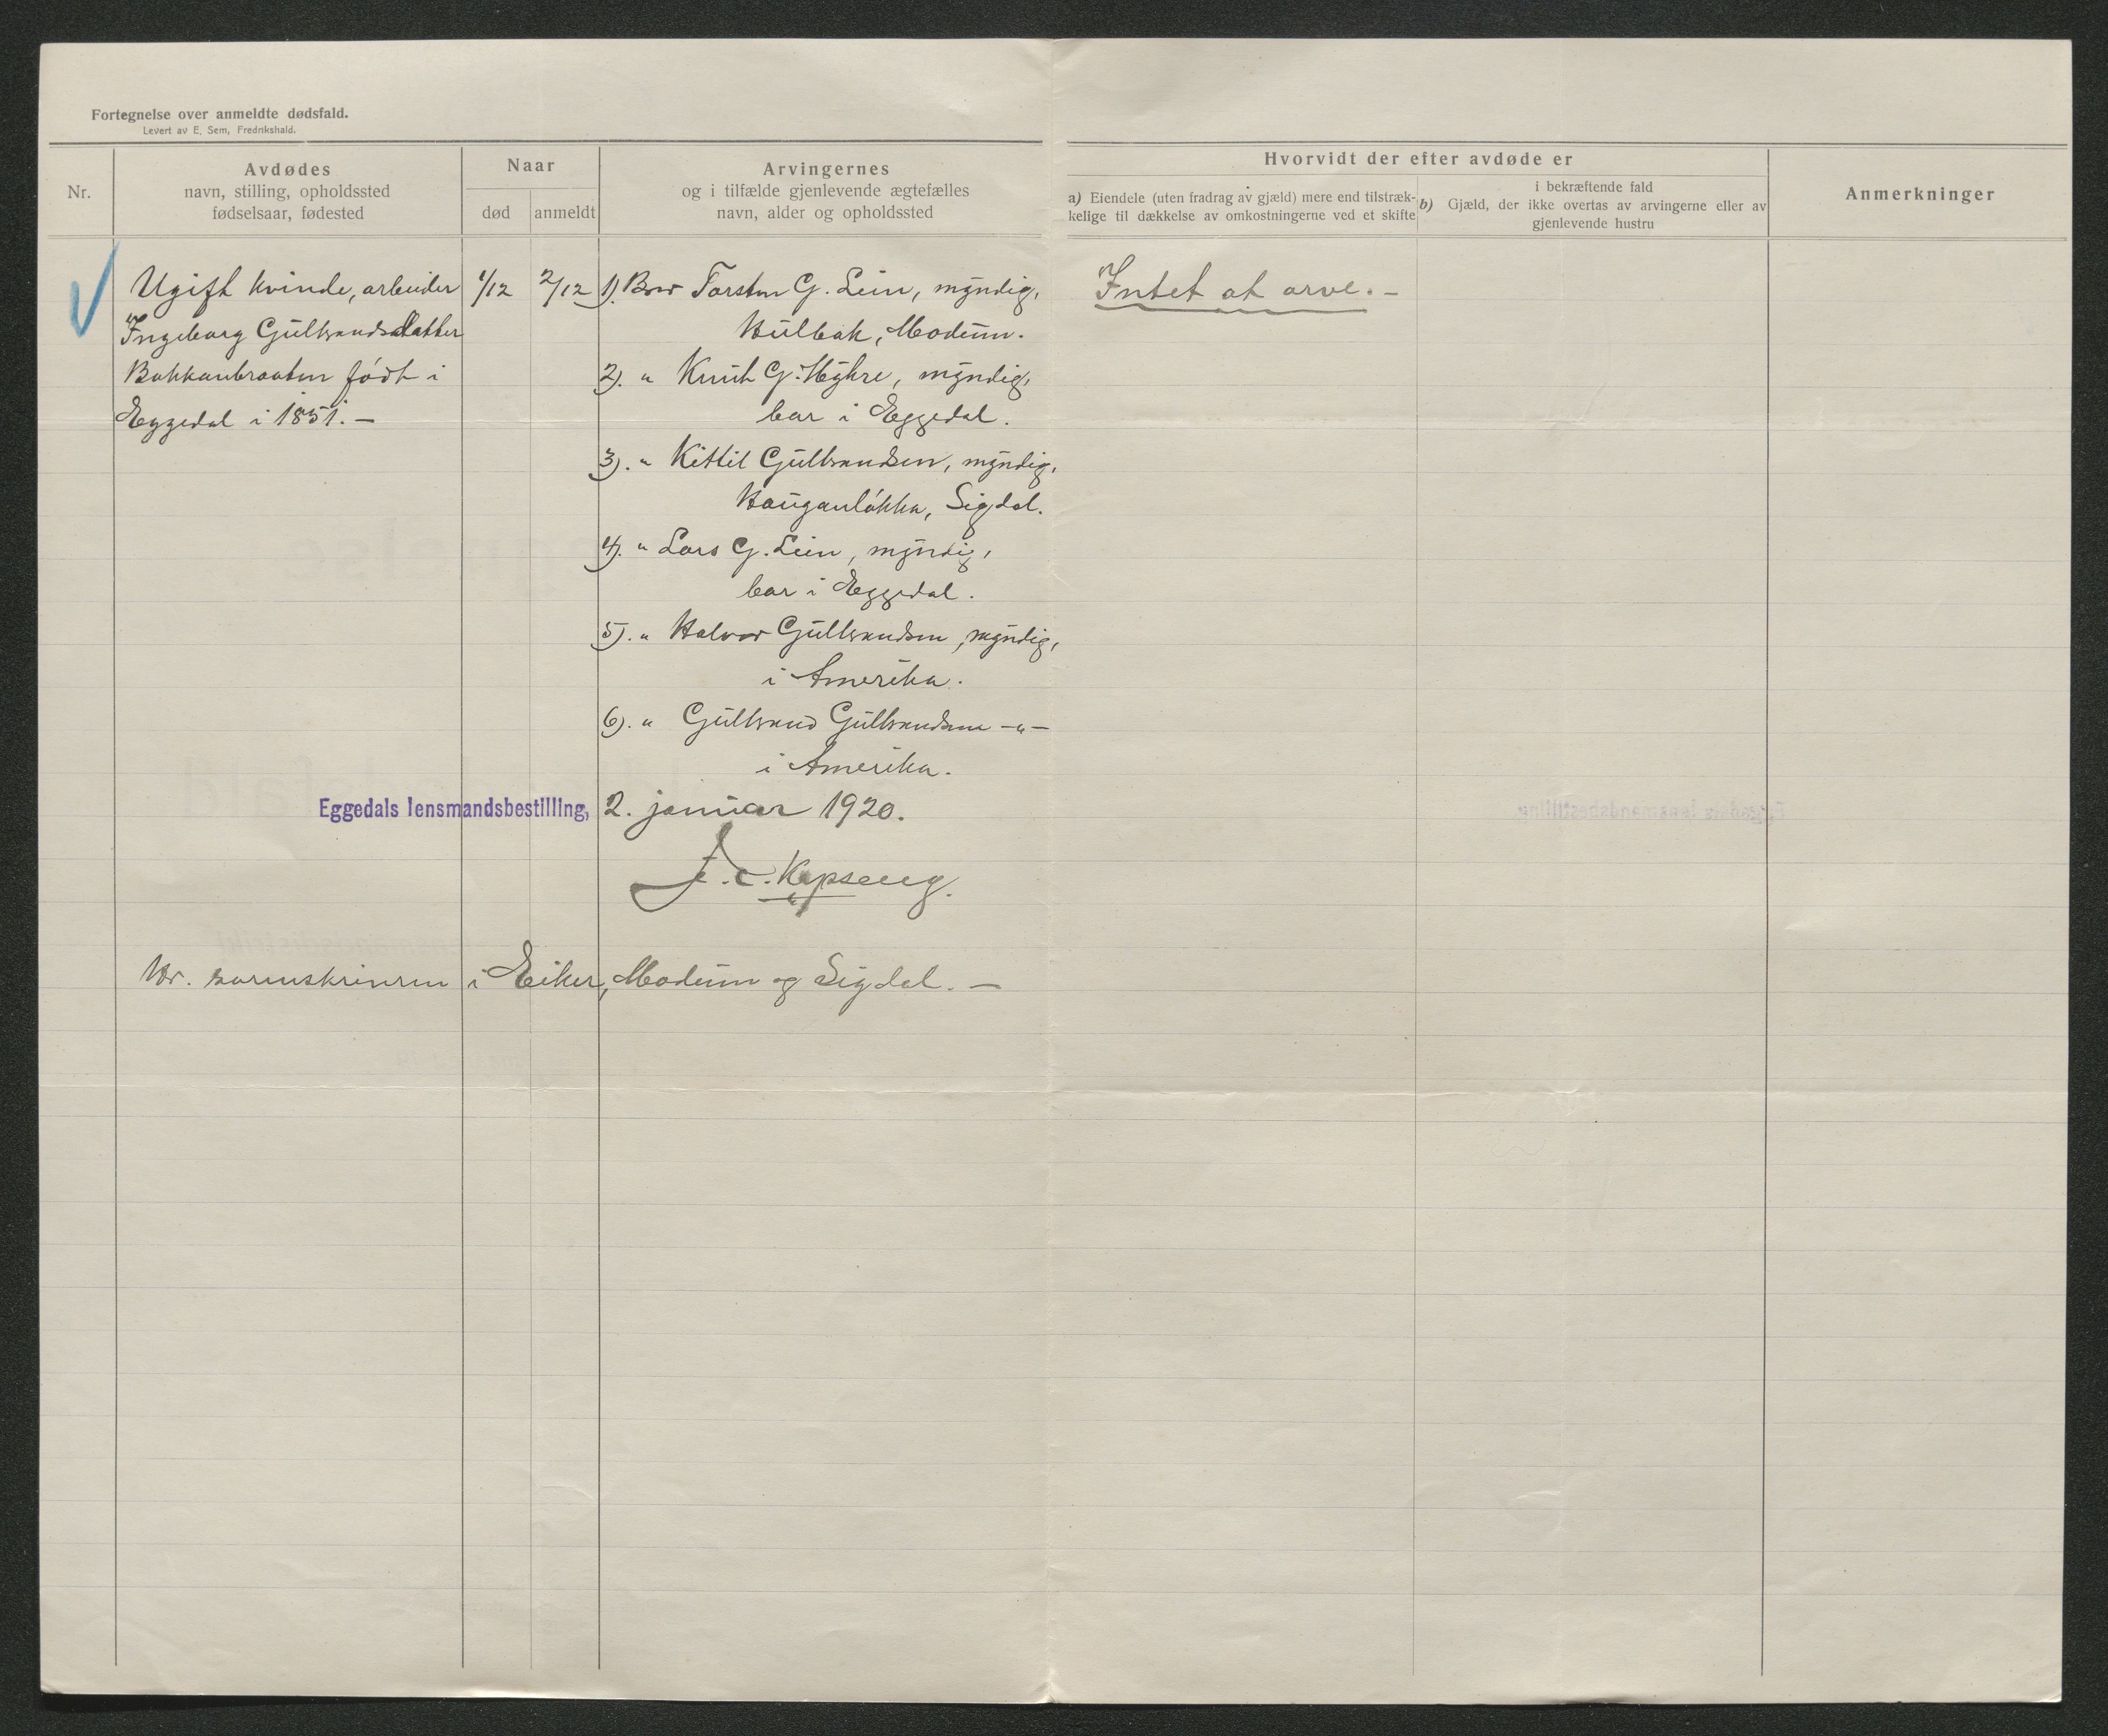 Fortegnelse over anmeldte dødsfald.
Levert av E. Sem, Fredrikshald.
Nr.
Avdødes
navn, stilling, opholdssted
fødselsaar, fødested
Naar
død
anmeldt
Arvingernes
og i tilfælde gjenlevende ægtefælles
navn, alder og opholdssted
Hvorvidt der efter avdøde er
a) Eiendele (uten fradrag av gjæld) mere end tilstræk-
kelige til dækkelse av omkostningerne ved et skifte
i bekræftende fald
b) Gjæld, der ikke overtas av arvingerne eller av
gjenlevende hustru
Anmerkninger
Ugift kvinde, arbeider
Ingeborg Gulbrandsdatter
Bakkanbraaten født i
Eggedal i 1851. —
1/12
2/12
1). Bror Torsten G. Lein, myndig,
Hulbak, Modum.
2). " Knut G. Myhre, myndig,
bor i Eggedal.
3). " Kittil Gulbrandsen, myndig,
Hauganløkka, Sigdal.
4). " Lars G. Lein, myndig,
bor i Eggedal.
5). " Halvor Gulbrandsen, myndig,
i Amerika.
6). " Gulbrand Gulbrandsen — " —
i Amerika.
Intet at arve. —
Eggedals lensmandsbestilling, 2. januar 1920.
Hr. sorenskriveren i Eiker, Modum og Sigdal. —